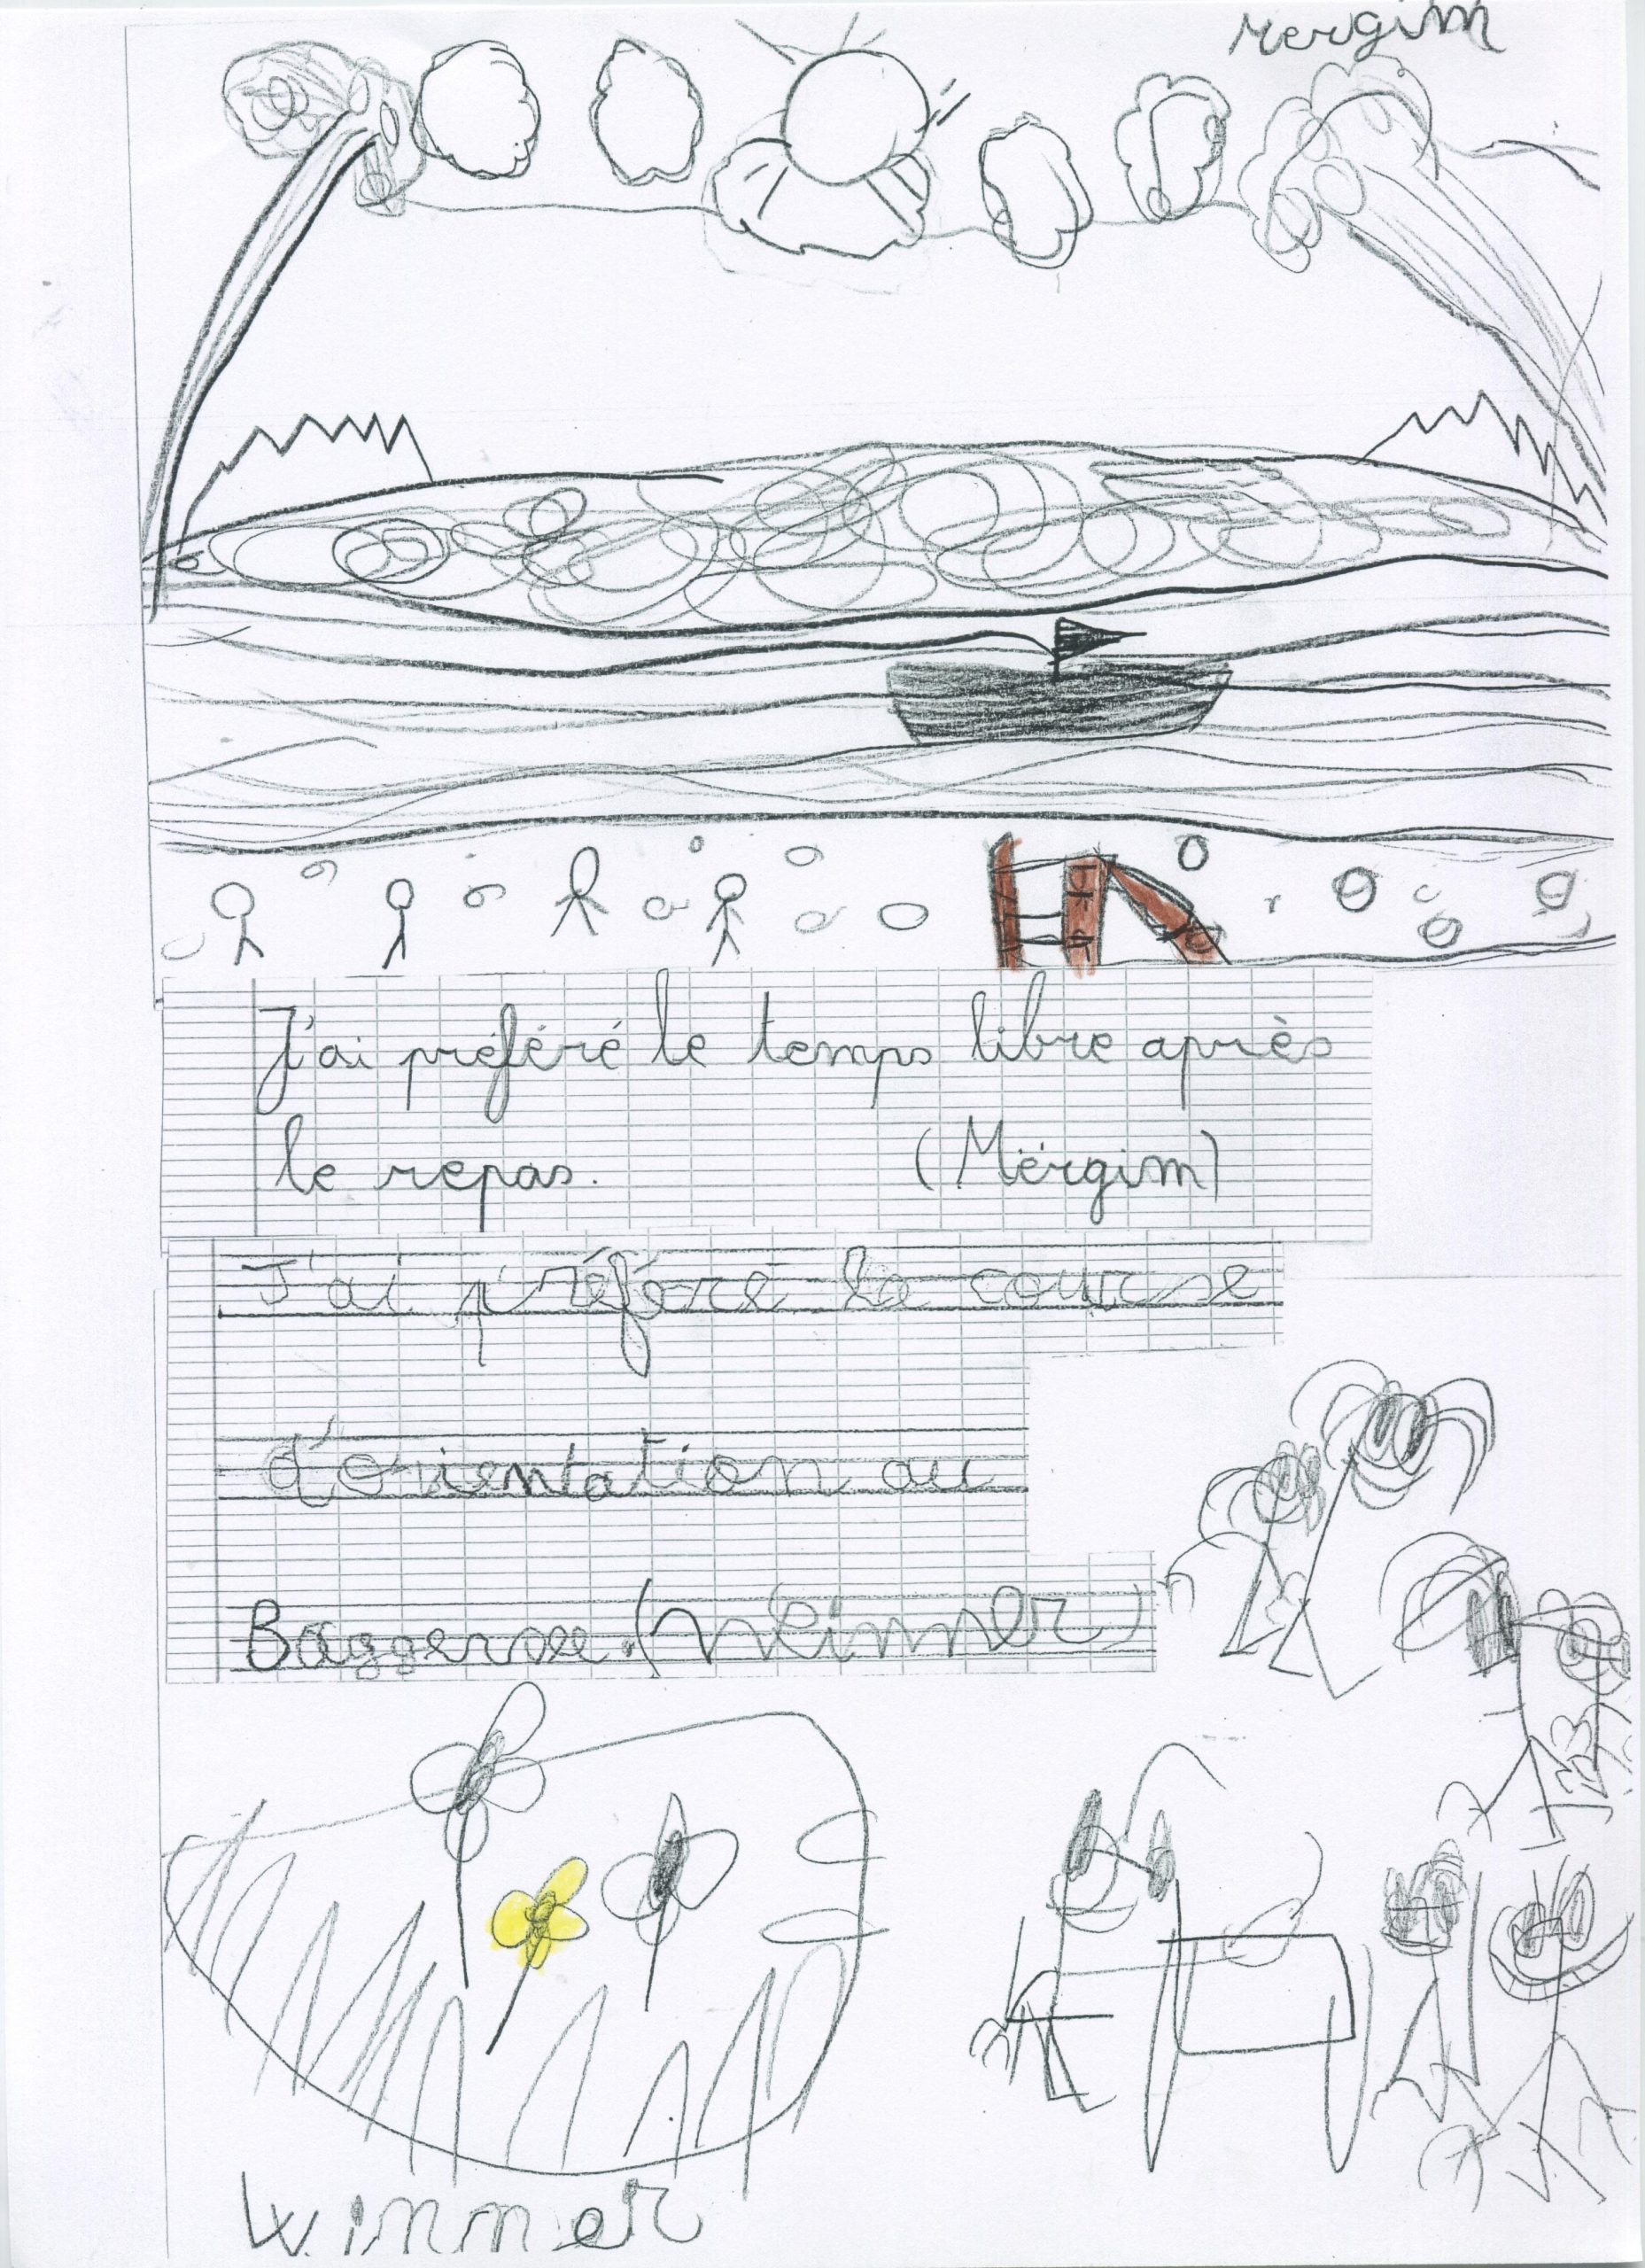 Mergim
J'ai préféré le temps libre après
le repas. (Mërgim)
J'ai préféré la course
d'orientation au
Baggersee. (Winner)
Winner